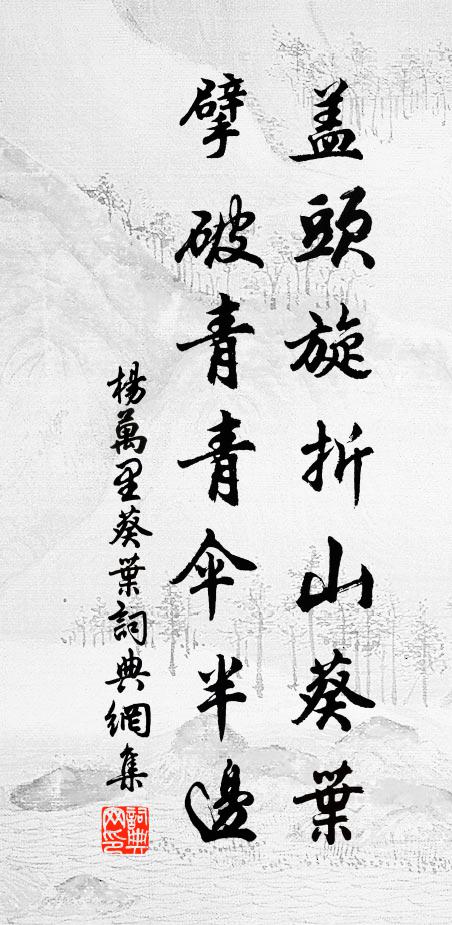 盖頭旋折山葵葉
擘破青青傘半邊
楊萬里葵葉詞典網集
詞典网印